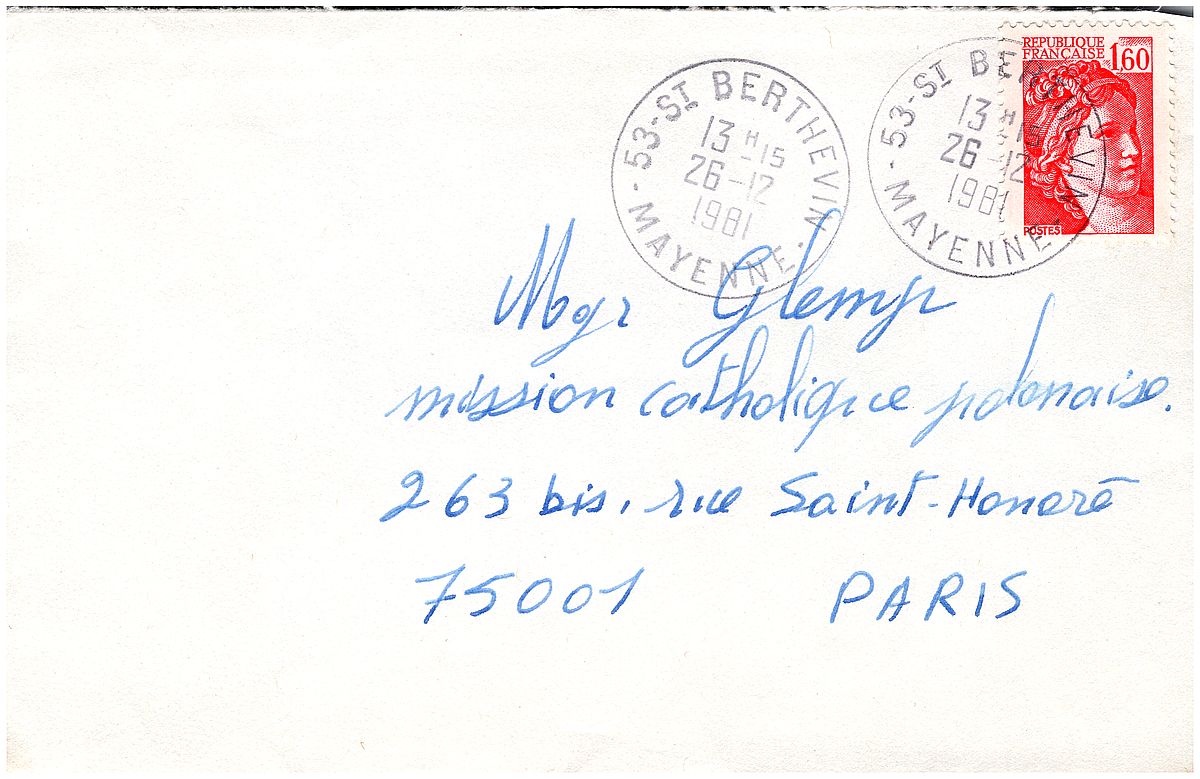 RÉPUBLIQUE
FRANÇAISE 1,60
POSTES
53-ST BERTHEVIN
13 H 15
26-12
1981
MAYENNE
53-ST BERTHEVIN
13 H 15
26-12
1981
MAYENNE
Mgr Glemp
mission catholique polonaise.
263 bis, rue Saint-Honoré
75001 PARIS